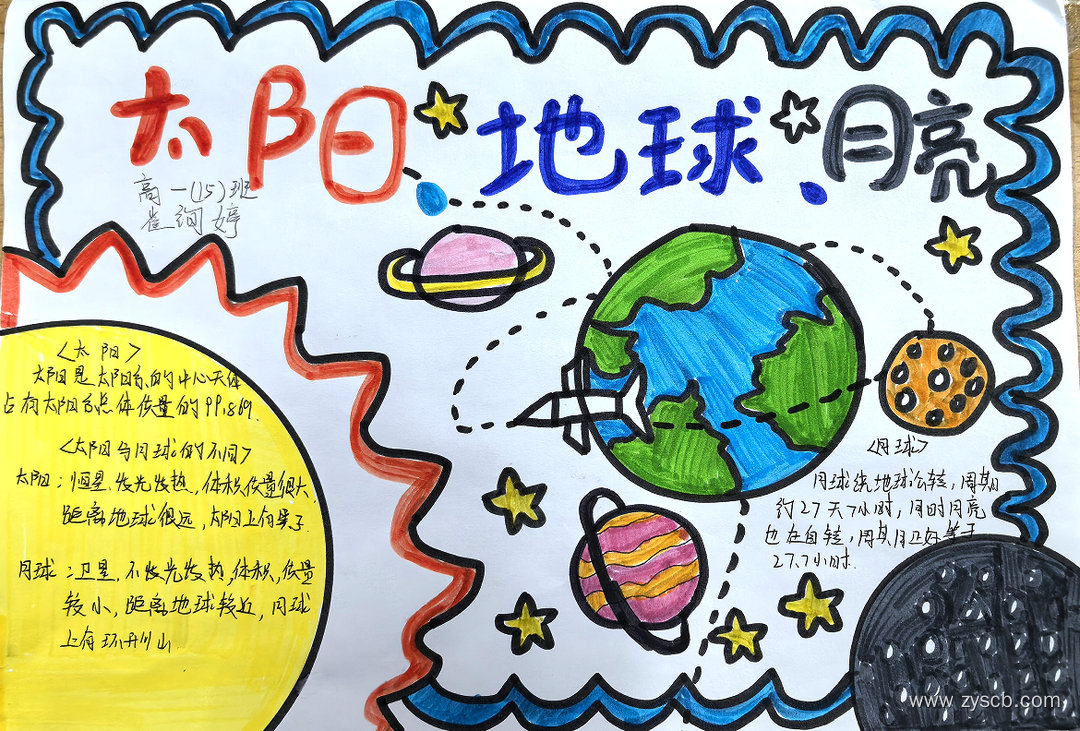 太阳 地球 月亮
高一(15)班
崔绚婷
<太阳>
太阳是太阳系的中心天体
占有太阳系总体质量的99.86%.
<太阳与月球的不同>
太阳：恒星,发光发热,体积质量很大,
距离地球很远,太阳上有黑子.
月球：卫星,不发光发热,体积,质量
较小,距离地球较近,月球
上有环形山
<月球>
月球绕地球公转,周期
约27天7小时,同时月亮
也在自转,周期正好等于
27.7小时.
www.zyscb.com